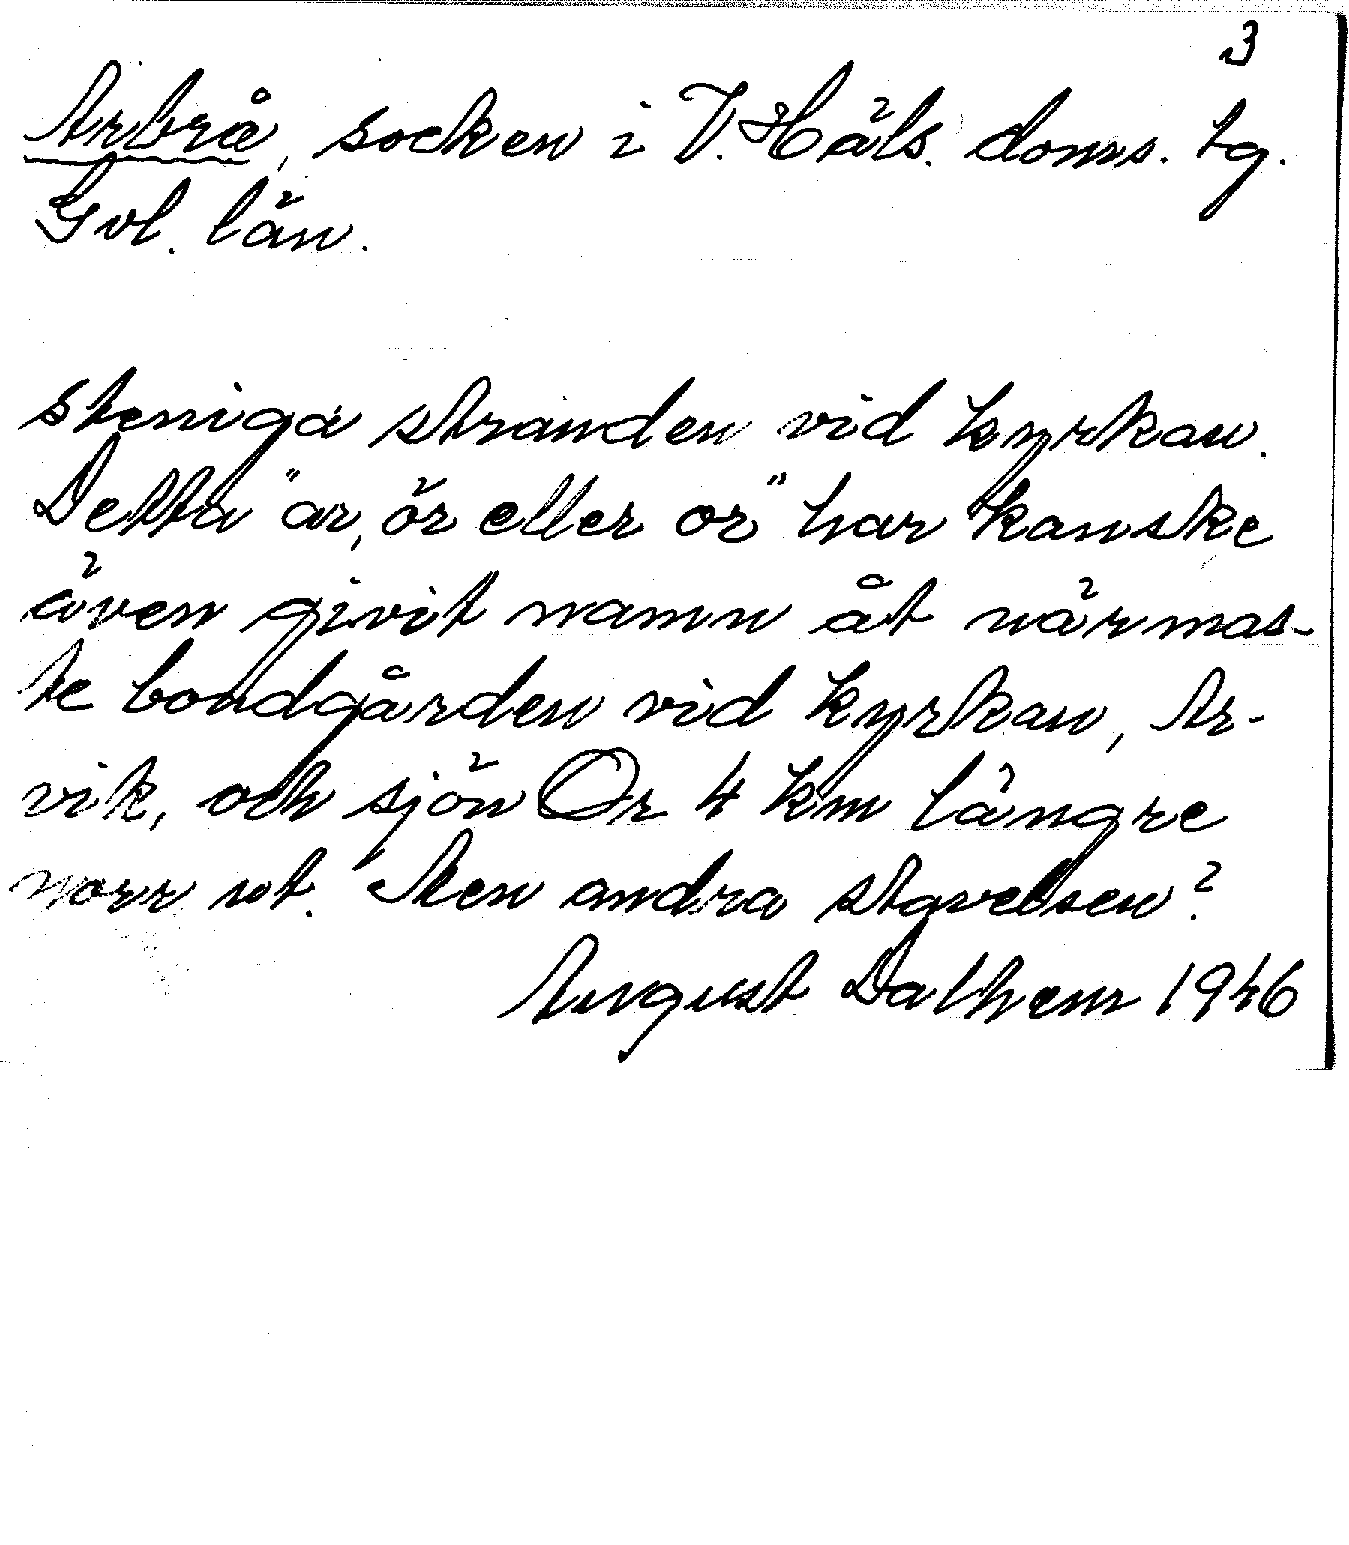 3
Arbrå, socken i V. Häls. doms. tg.
Gvl. län.
steniga stranden vid kyrkan.
Detta "ar, ör eller or" har kanske
även givit namn åt närmas-
te bondgården vid kyrkan, Ar-
vik, och sjön Or 4 km längre
norr ut. Men andra stavelsen?
August Dalhem 1946